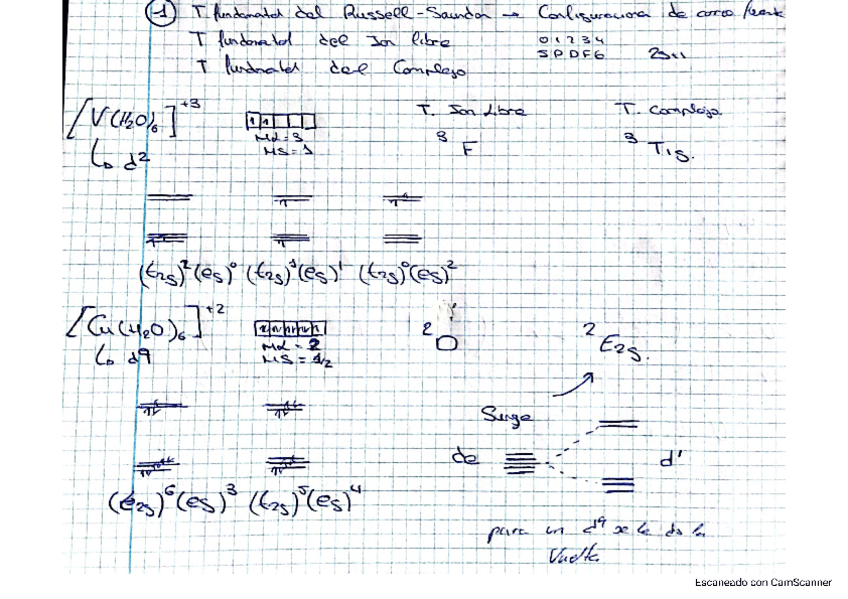 -1 T fundamental del Russell-Saunders → Configuraciones de campo fuerte
T fundamental del Ion libre 0 1 2 3 4
T fundamental del Complejo S P D F G 2S+1
[V(H2O)6]+3 T. Ion Libre T. Complejo.
ML=3
MS=1
↳ d2 3F 3T1g.
(t2g)2(eg)0 (t2g)1(eg)1 (t2g)0(eg)2
[Cu(H2O)6]+2 2D 2E2g.
↳ d9 ML = 2
MS = 1/2
Surge
de d1
(t2g)6(eg)3 (t2g)5(eg)4
para un d9 se le da la
Vuelta
Escaneado con CamScanner